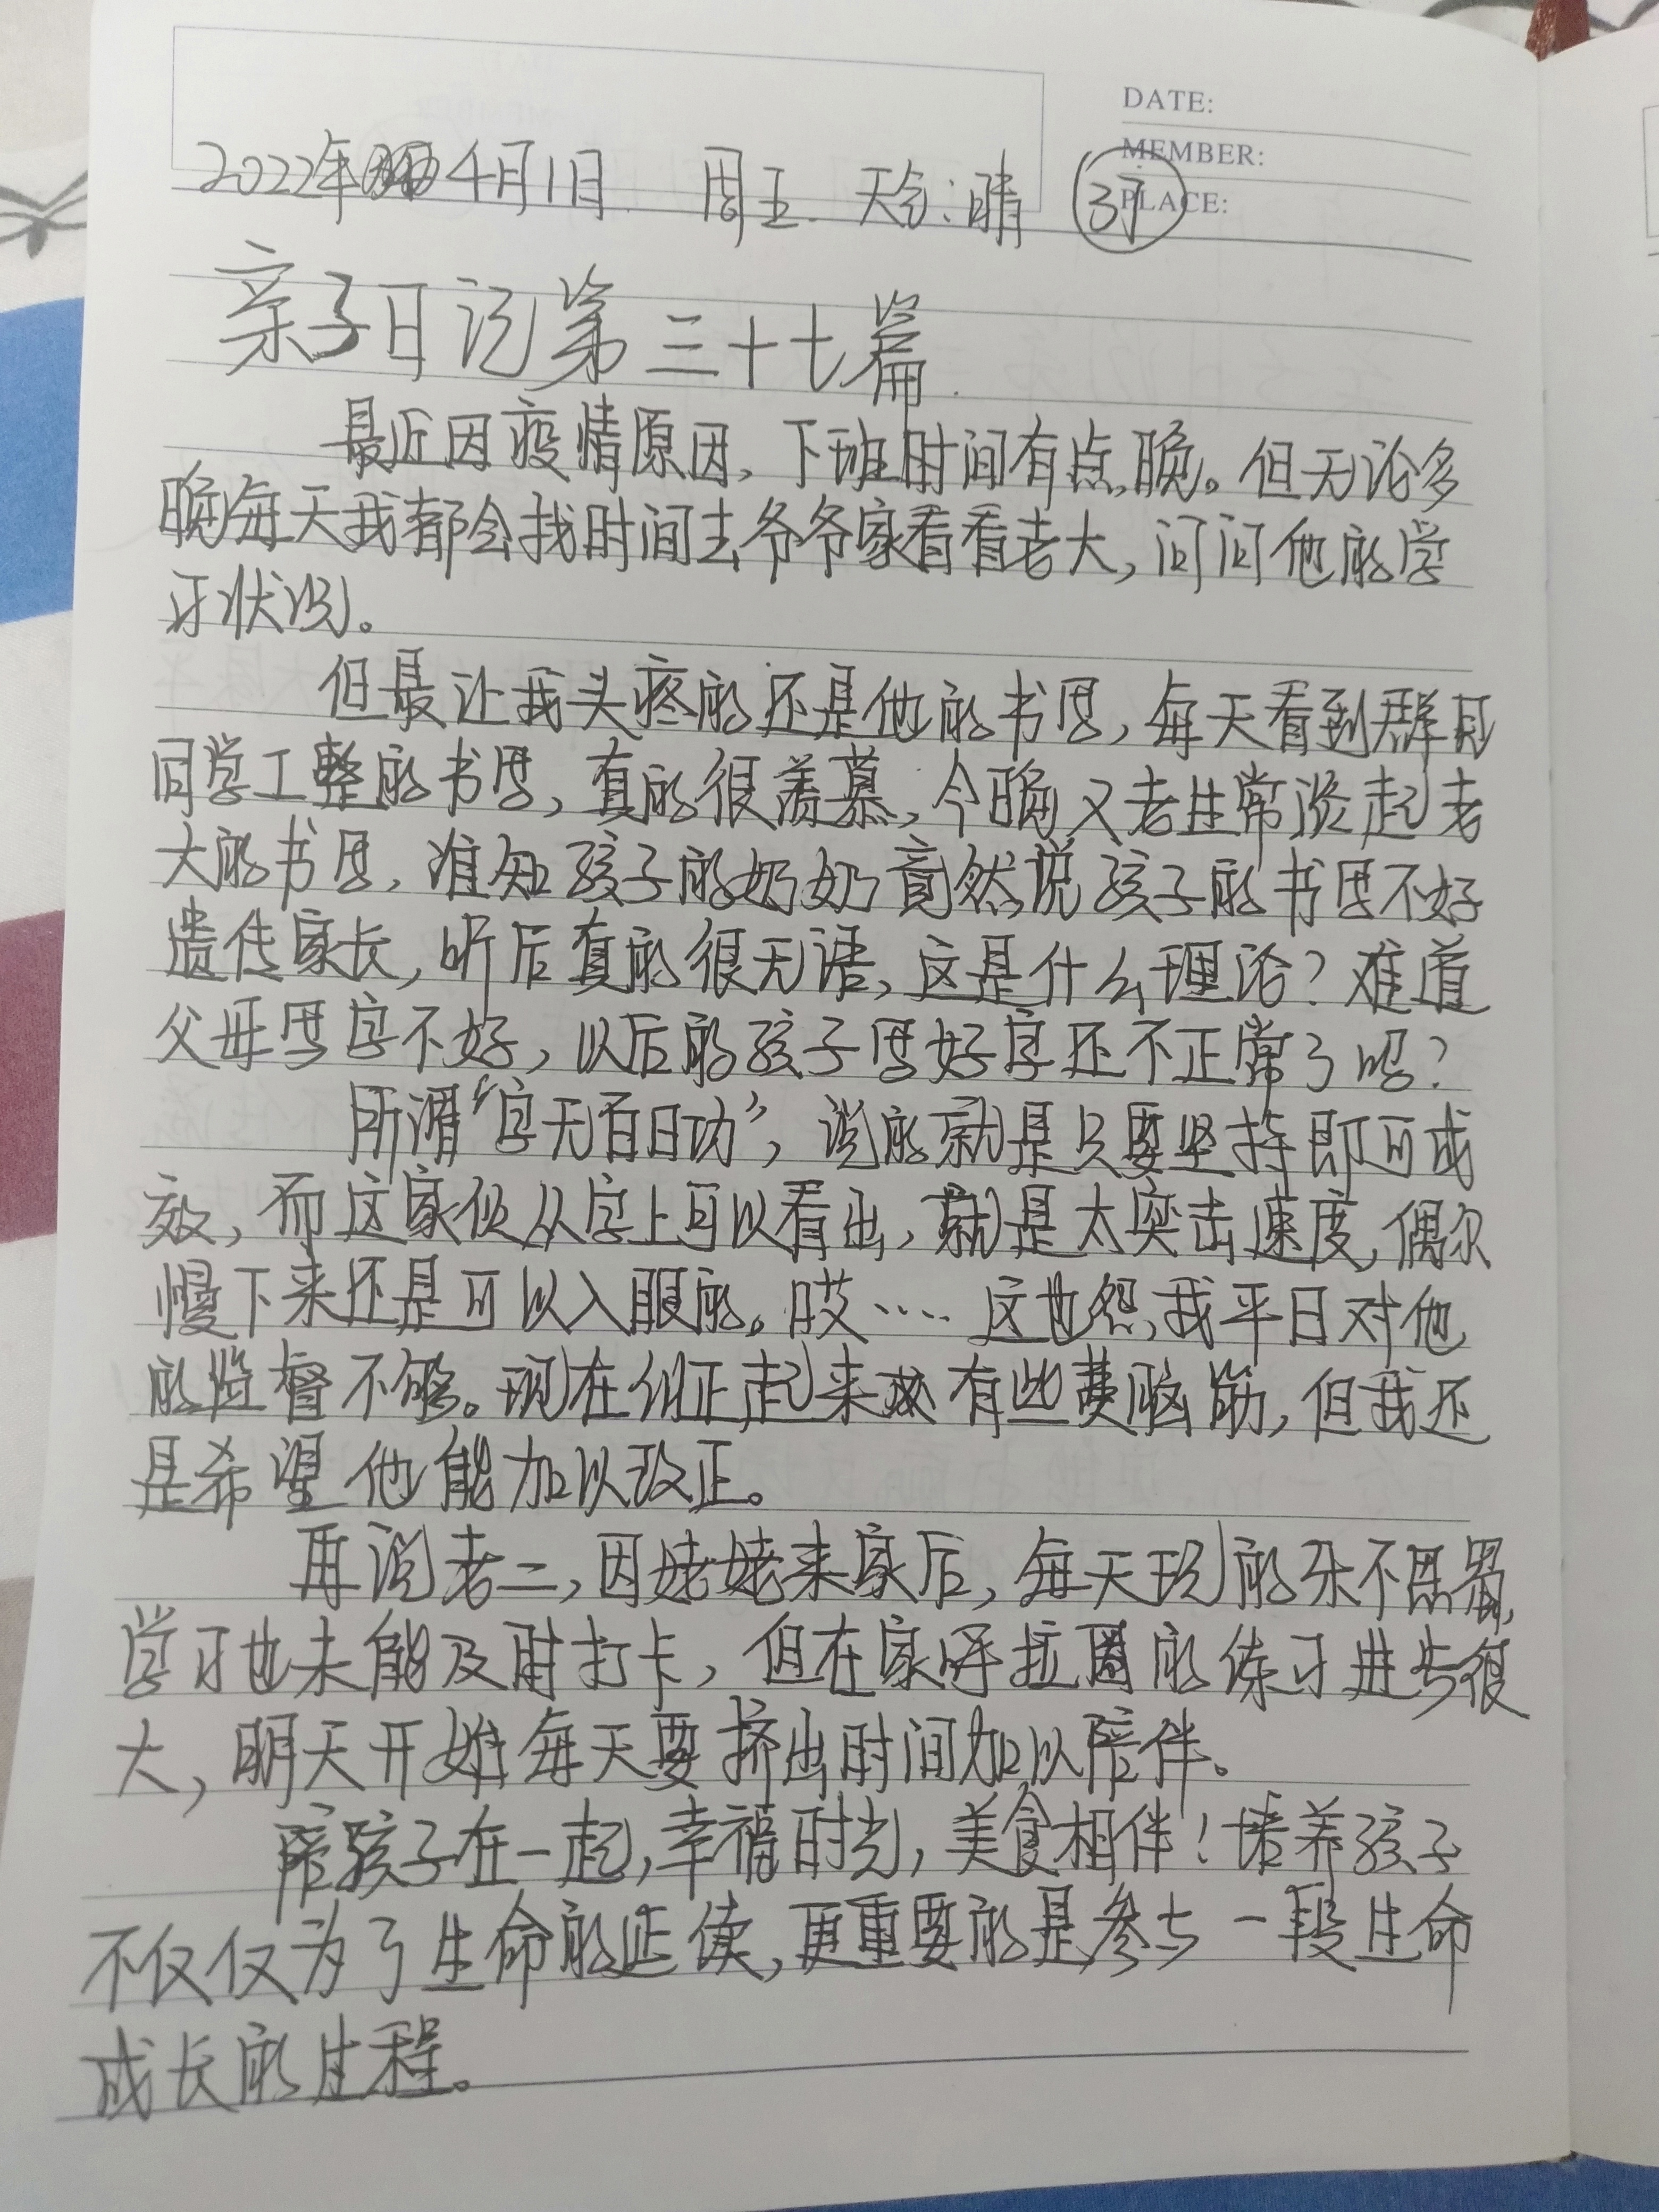 DATE:
MEMBER:
PLACE:
2022年 4月1日 周五. 天气:晴 37
亲子日记第三十七篇.
最近因疫情原因,下班时间有点晚。但无论多
晚每天我都会找时间去爷爷家看看老大,问问他的学
习状况。
但最让我头疼的还是他的书写,每天看到群里
同学工整的书写,真的很羡慕,今晚又老生常谈起老
大的书写,谁知孩子的奶奶竟然说孩子的书写不好
遗传家长,听后真的很无语,这是什么理论?难道
父母写字不好,以后的孩子写好字还不正常了吗?
所谓“字无百日功”,说的就是只要坚持即可成
效,而这家伙从字上可以看出,就是太突击速度,偶尔
慢下来还是可以入眼的。哎…… 这也怨我平日对他
的监督不够。现在纠正起来 有些费脑筋,但我还
是希望他能加以改正。
再说老二,因姥姥来家后,每天玩的乐不思蜀,
学习也未能及时打卡,但在家呼拉圈的练习进步很
大,明天开始每天要挤出时间加以陪伴。
陪孩子在一起,幸福时光,美食相伴!培养孩子
不仅仅为了生命的延续,更重要的是参与一段生命
成长的过程。